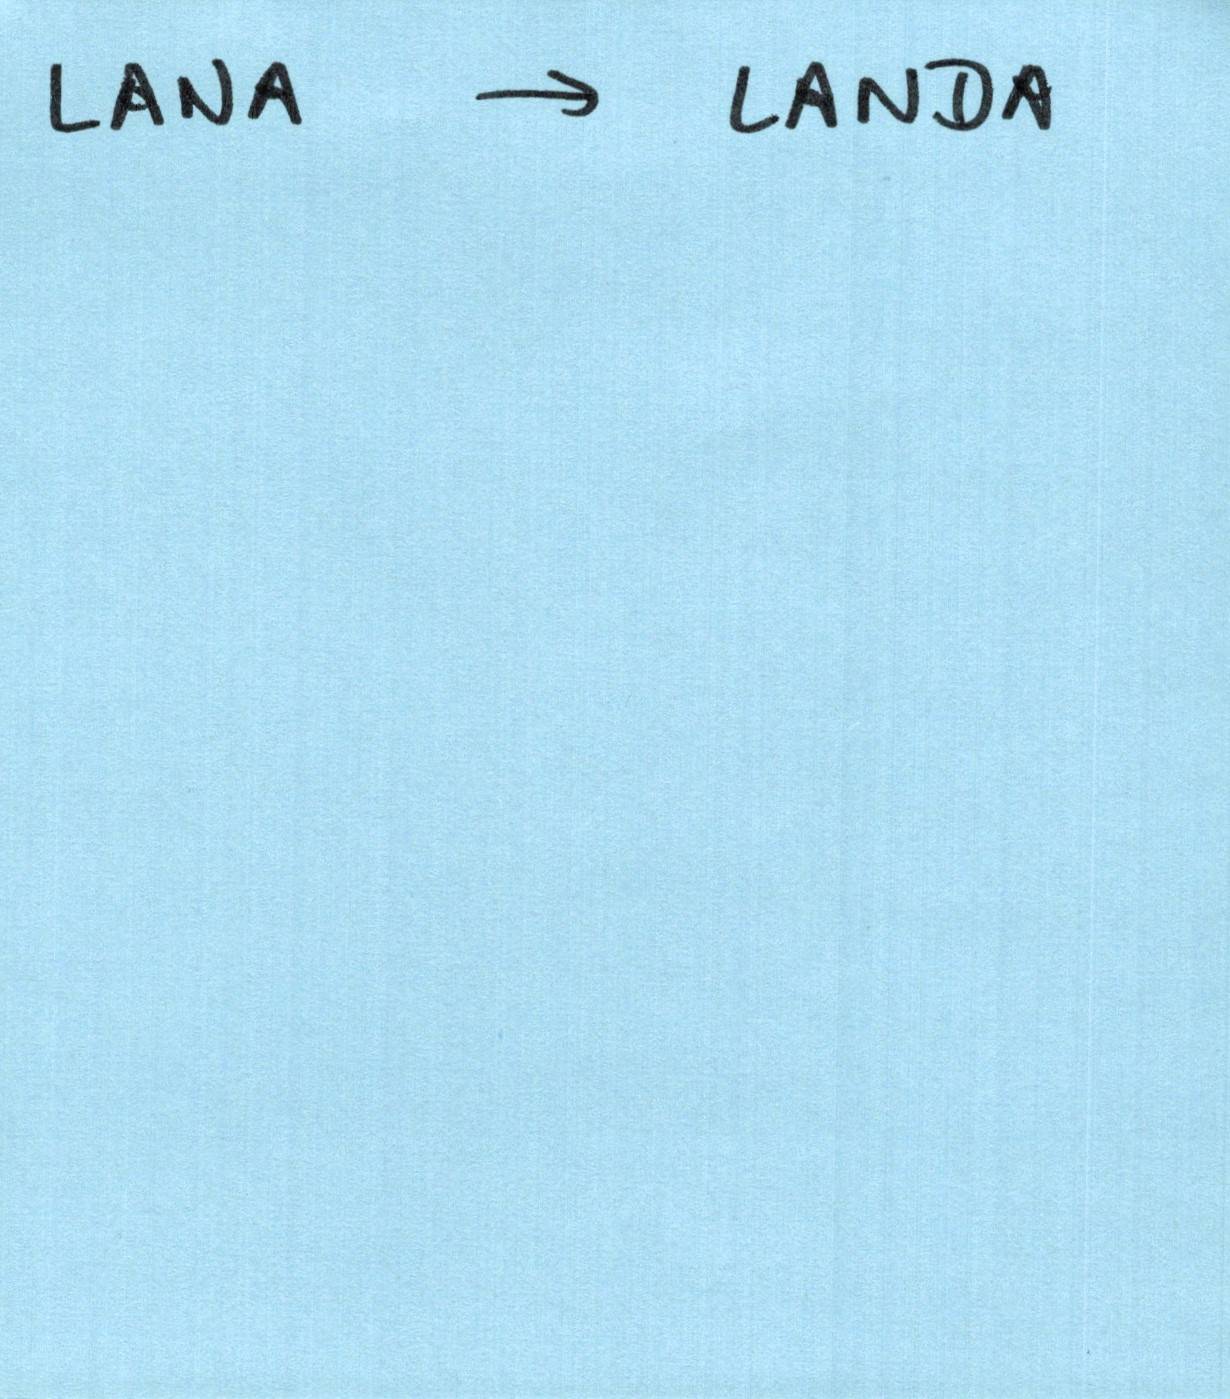 LANA → LANDA